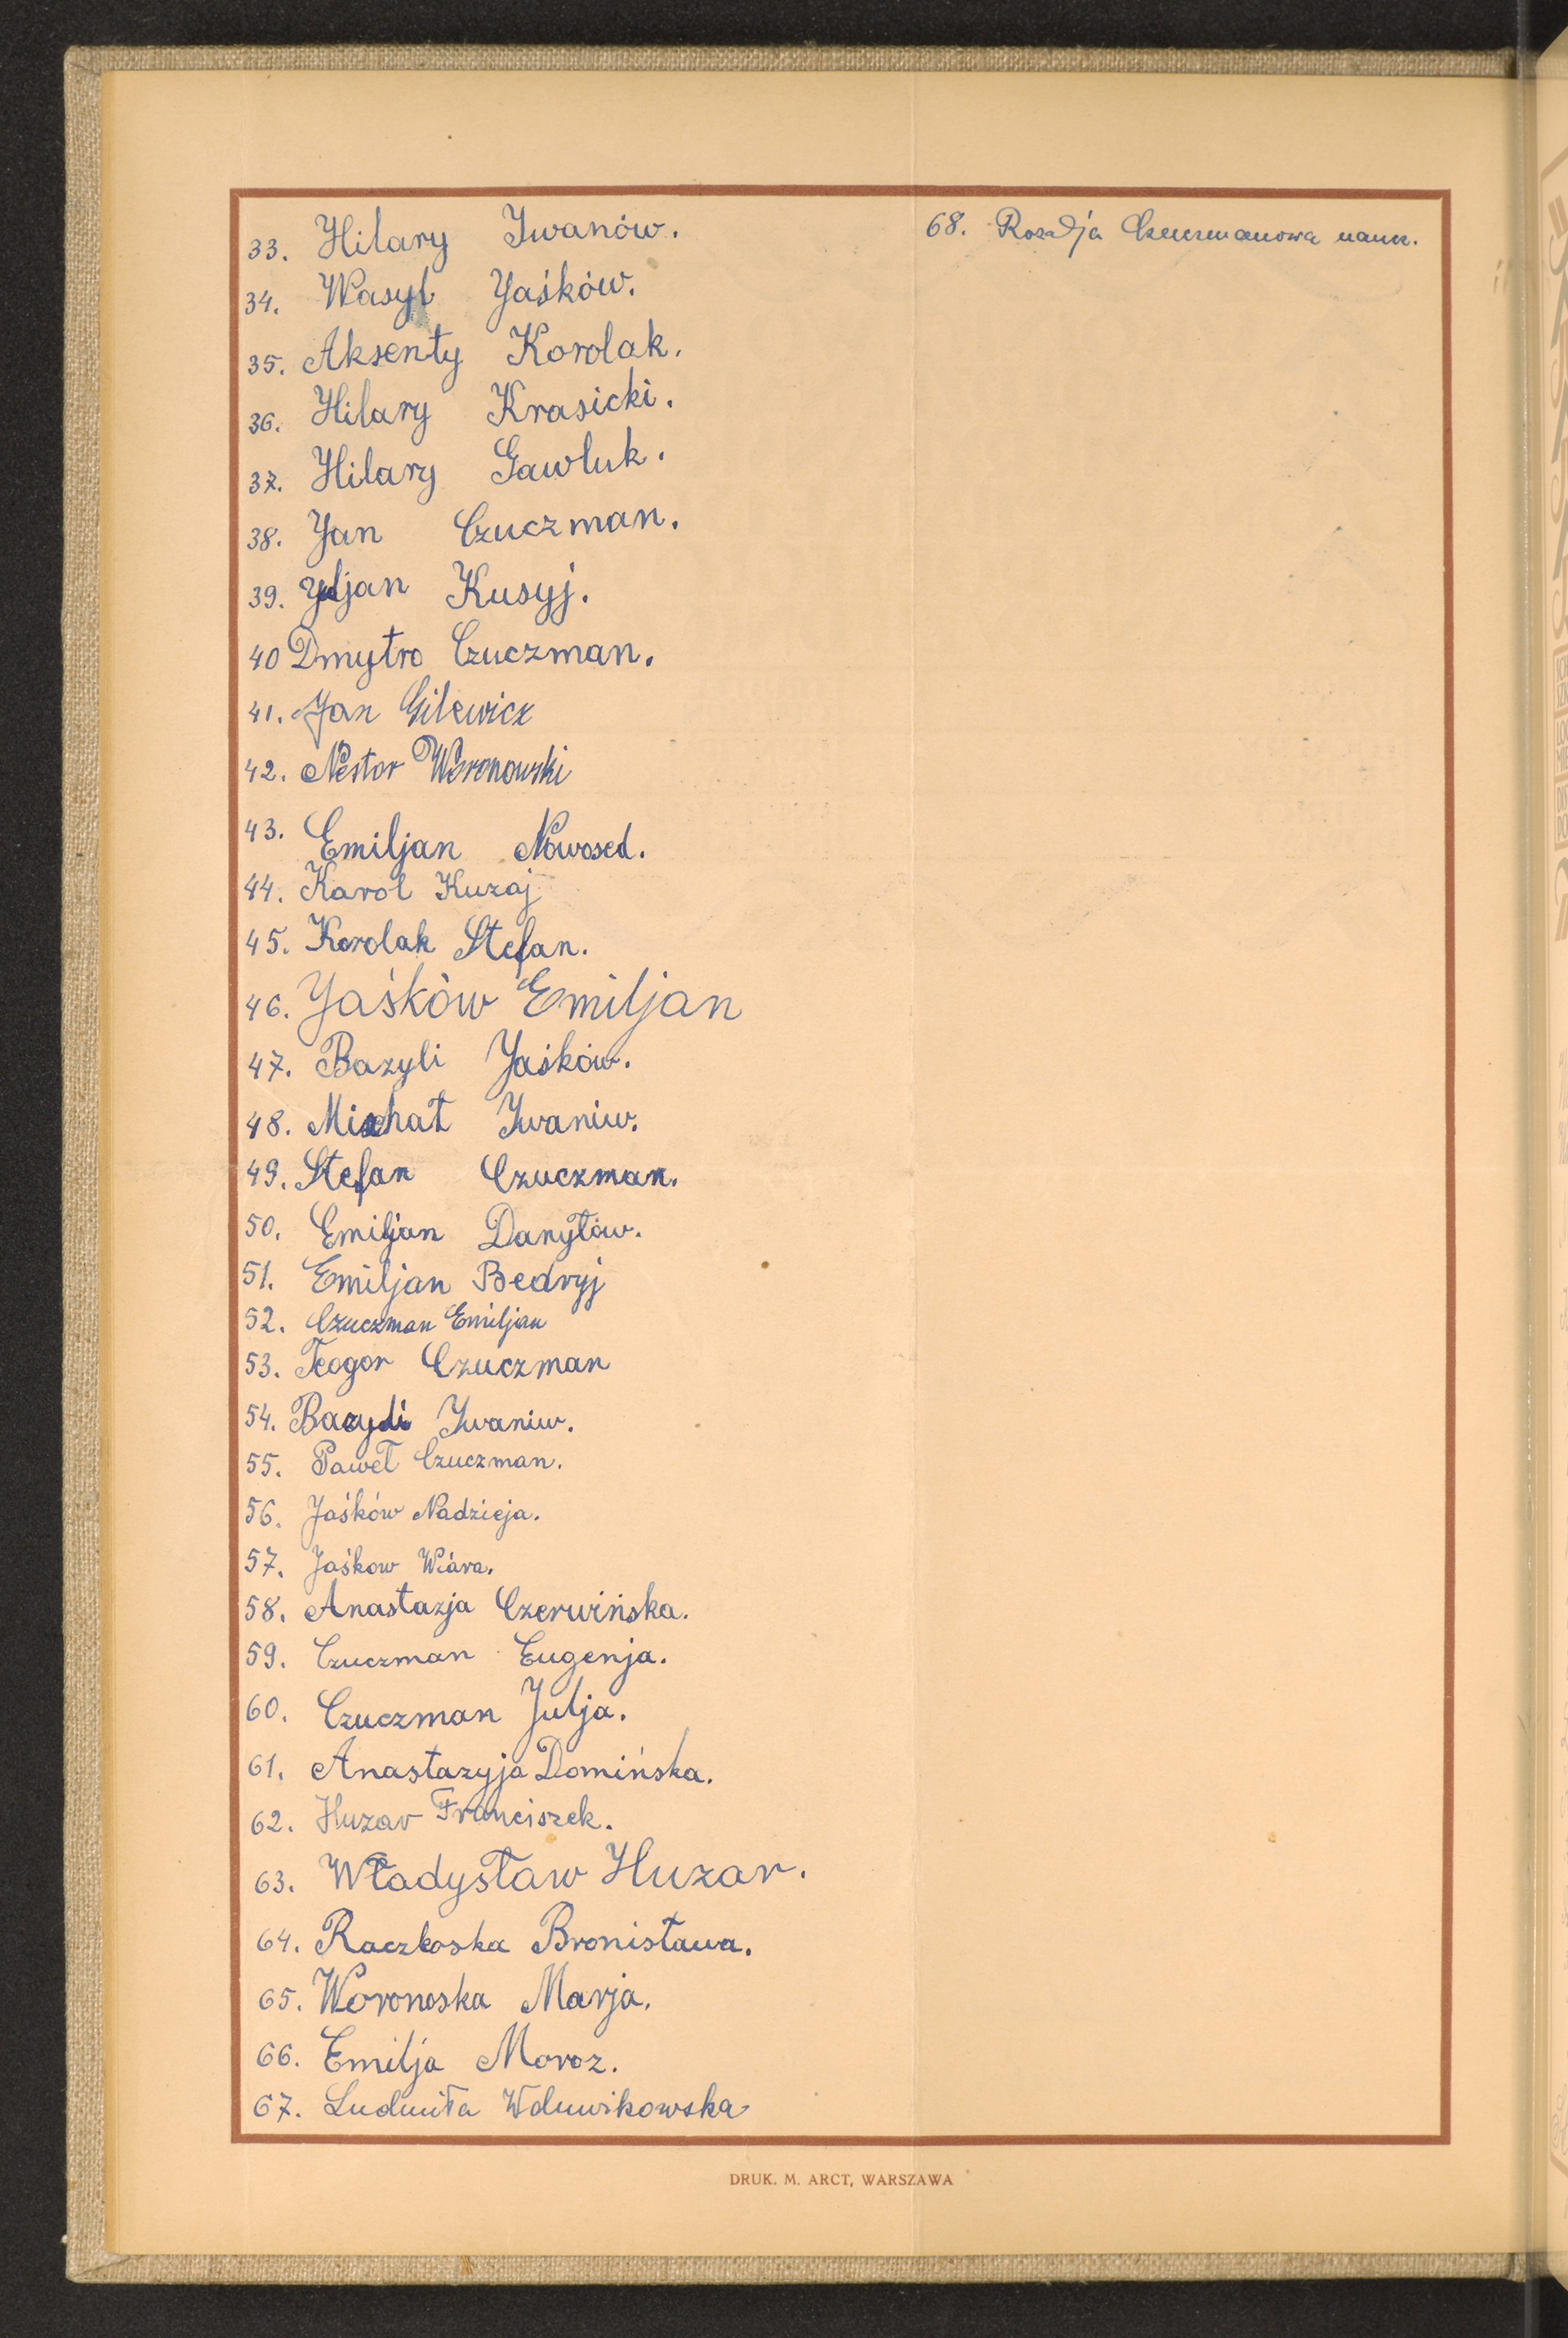 33. Hilary Iwanów.
34. Wasyl Jaśków.
35. Aksenty Korolak.
36. Hilary Krasicki.
37. Hilary Gawluk.
38. Jan Czuczman.
39. Juljan Kusyj.
40 Dmytro Czuczman.
41. Jan Gilewicz
42. Nestor Woronowski
43. Emiljan Nowosed.
44. Karol Kuzaj
45. Korolak Stefan.
46. Jaśków Emiljan
47. Bazyli Jaśków.
48. Michał Iwaniw.
49. Stefan Czuczman.
50. Emiljan Danyłów.
51. Emiljan Bedryj
52. Czuczman Emiljan
53. Teogor Czuczman
54. Bazyli Iwaniw.
55. Paweł Czuczman.
56. Jaśków Nadzieja.
57. Jaśkow Wiara.
58. Anastazja Czerwińska.
59. Czuczman Eugenja.
60. Czuczman Julja.
61. Anastazyja Domińska.
62. Huzar Franciszek.
63. Władysław Huzar.
64. Raczkoska Bronisława.
65. Woronoska Marja.
66. Emilja Moroz.
67. Ludmiła
68. Rozalja Czuczmanowa naucz.
DRUK. M. ARCT, WARSZAWA